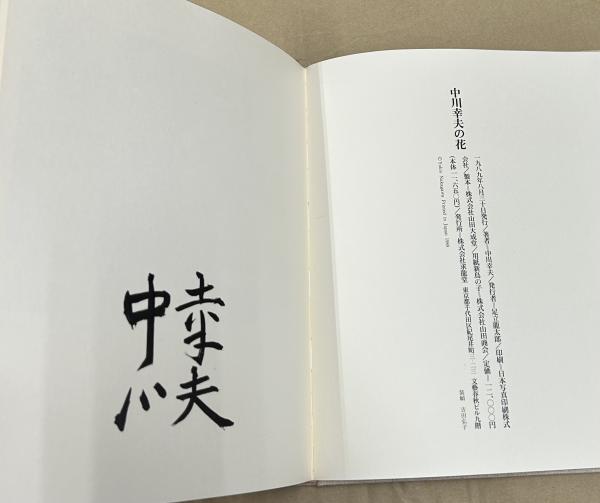 中川幸夫の花
一九八九年八月三十日発行／著者―中川幸夫／発行者―足立龍太郎／印刷―日本写真印刷株式
会社／製本―株式会社山田大成堂／用紙新鳥の子―株式会社山田商会／定価―一二、〇〇〇円
（本体 一一、六五〇円）／発行所―株式会社求龍堂 東京都千代田区紀尾井町三―二三 文藝春秋ビル九階
©Yukio Nakagawa Printed in Japan 1989
装幀 吉田弘子
幸夫
中川